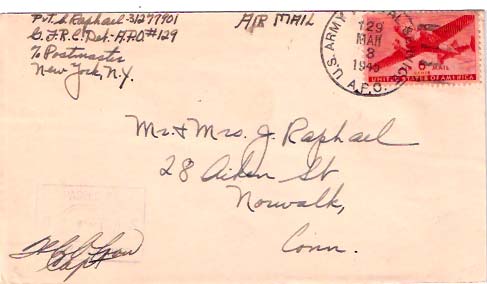 Pvt. L Raphael-31277901
AIR MAIL
G.F.R.C. Det.-A.P.O.#129
% Postmaster
New York, N.Y.
U.S. ARMY POSTAL
129
MAR
3
A.P.O.
MAIL
UNITED STATES OF AMERICA
Mr. & Mrs. J. Raphael
28 Aiken St
Norwalk,
Conn.
Capt